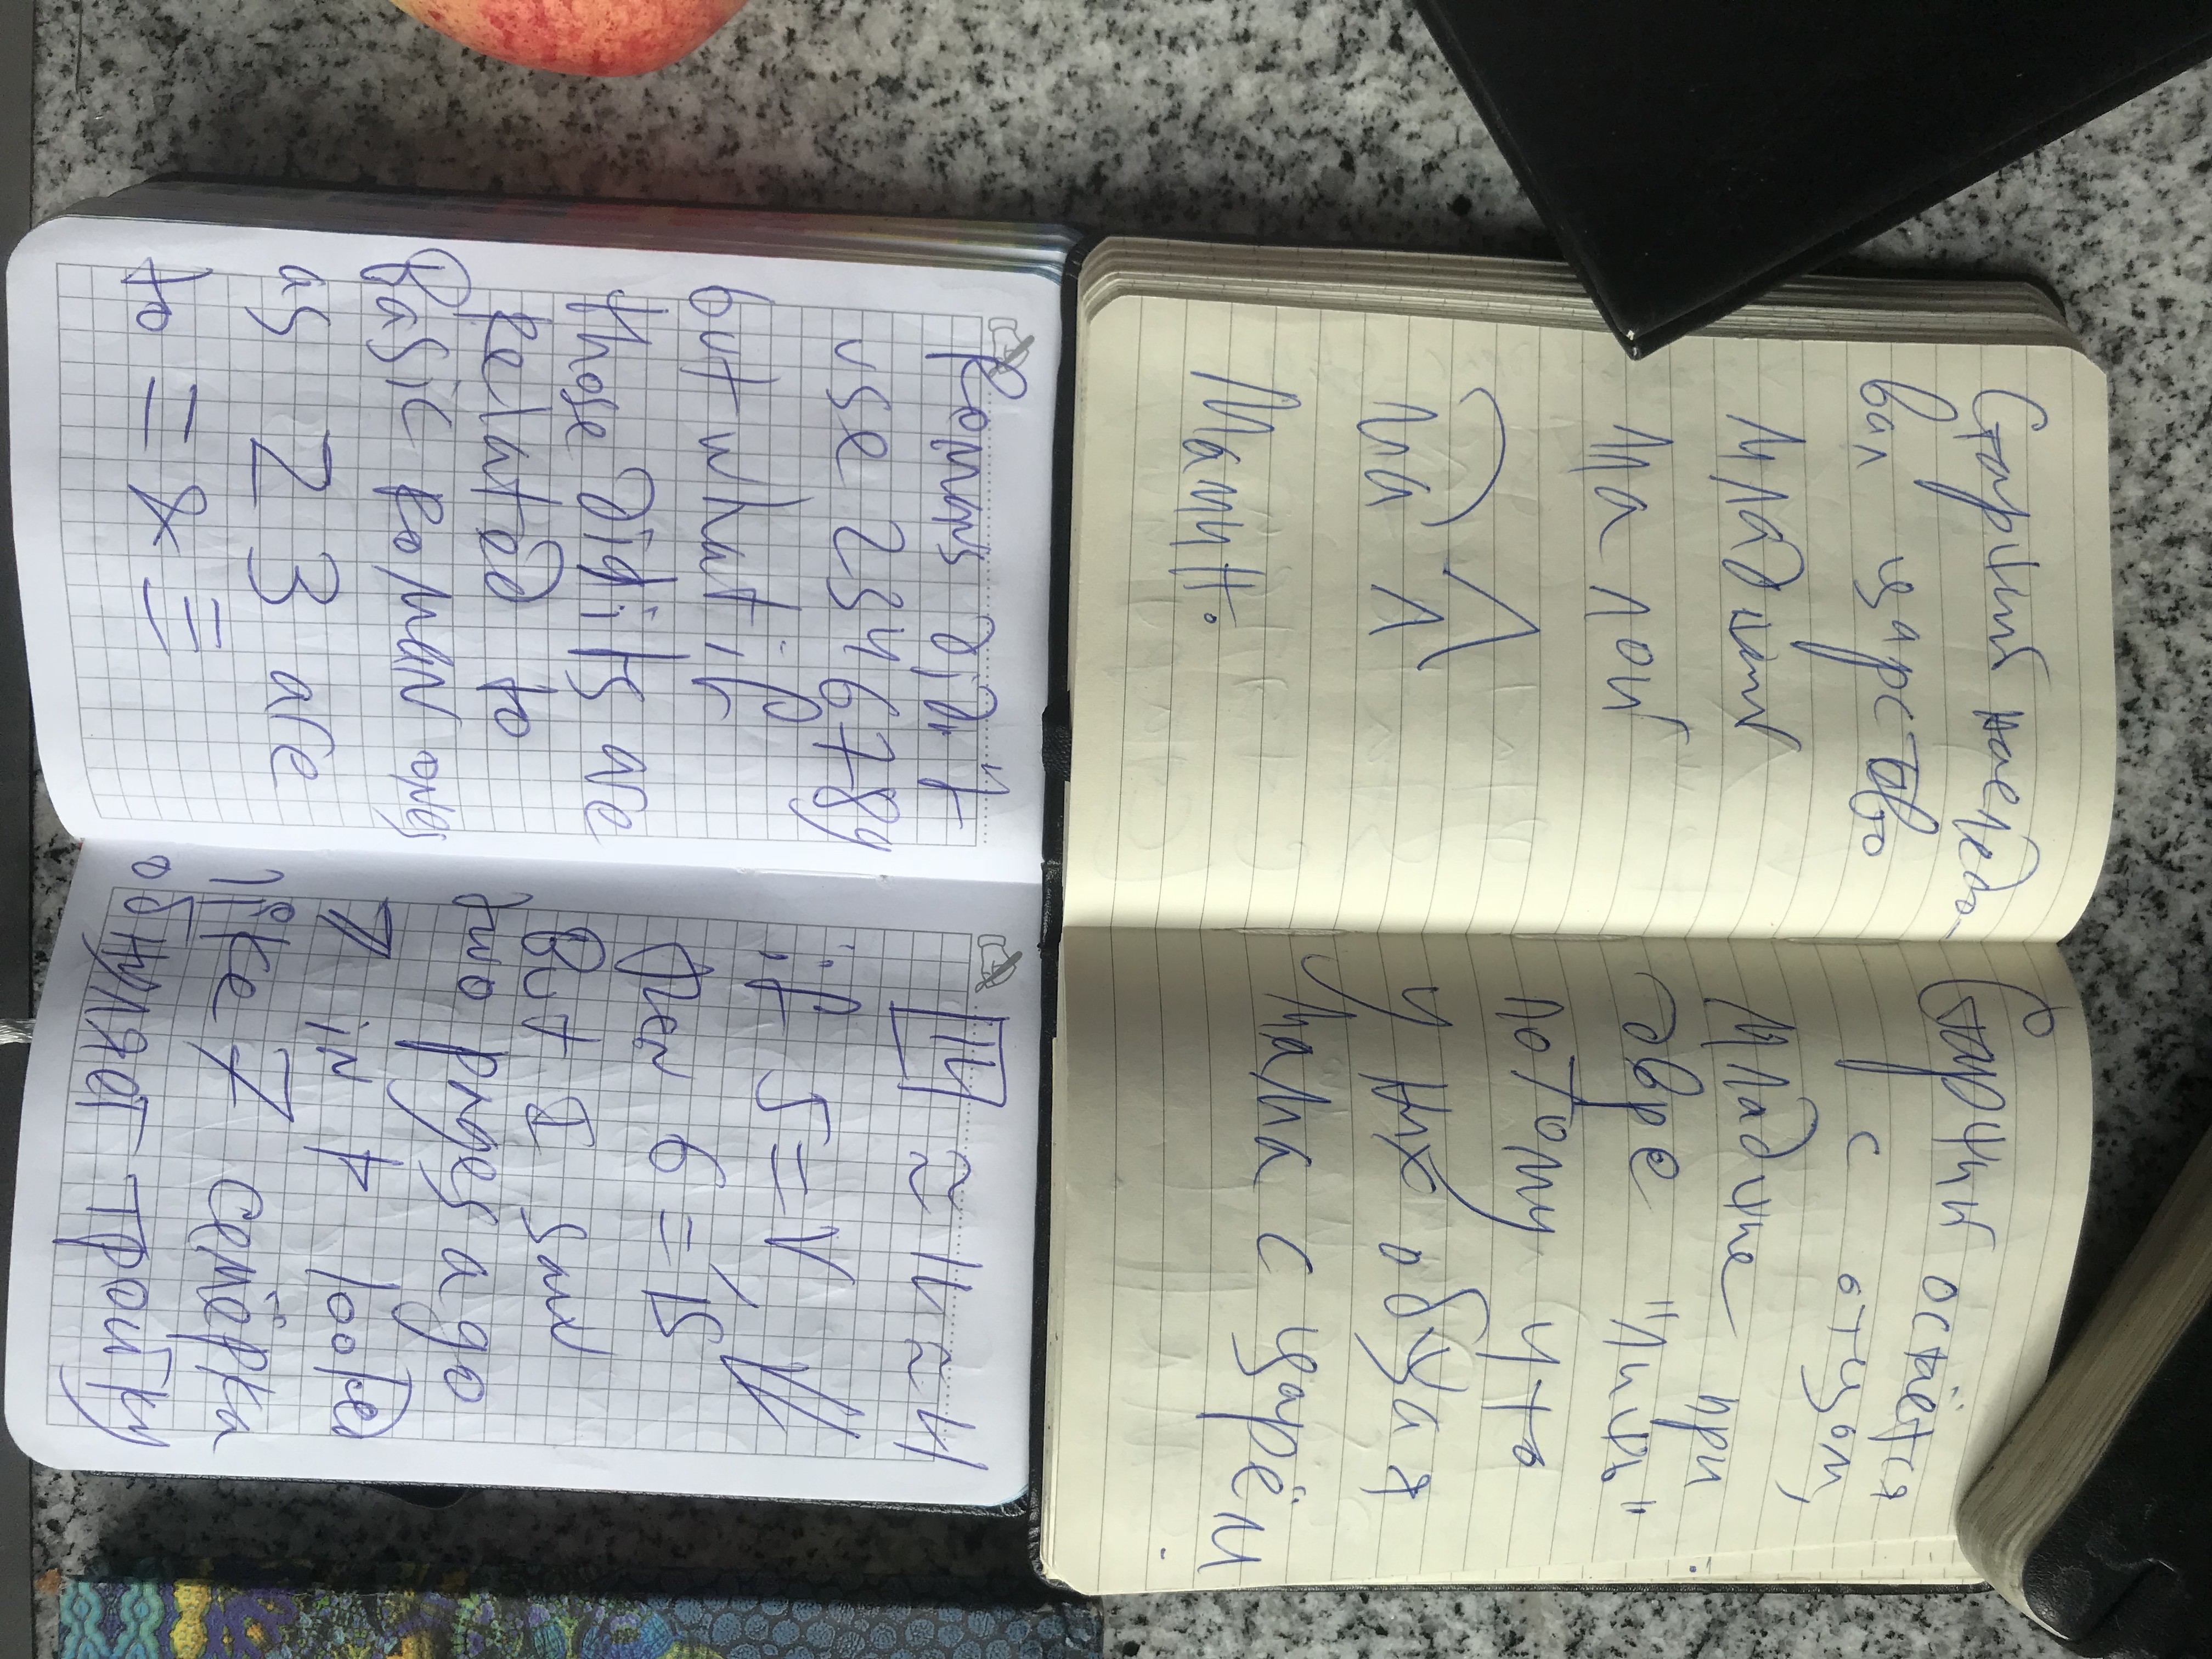 Старший наследо-
вал царство
младший
малой
ма
Мамин.
Старший остаётся
с отцом,
Младшие при
дворе "лишь"
потому что
у них общая
мама с царём
Romans didn't
use 2346789
but what if
those digits are
Related to
Basic Roman ones
as 2 3 are
to = & ≡
IIII ~ IV ~ 4
if 5 = V
then 6 =
But I saw
two pages ago
7 in 7 looked
like 7 семёрка
обнуляет тройку